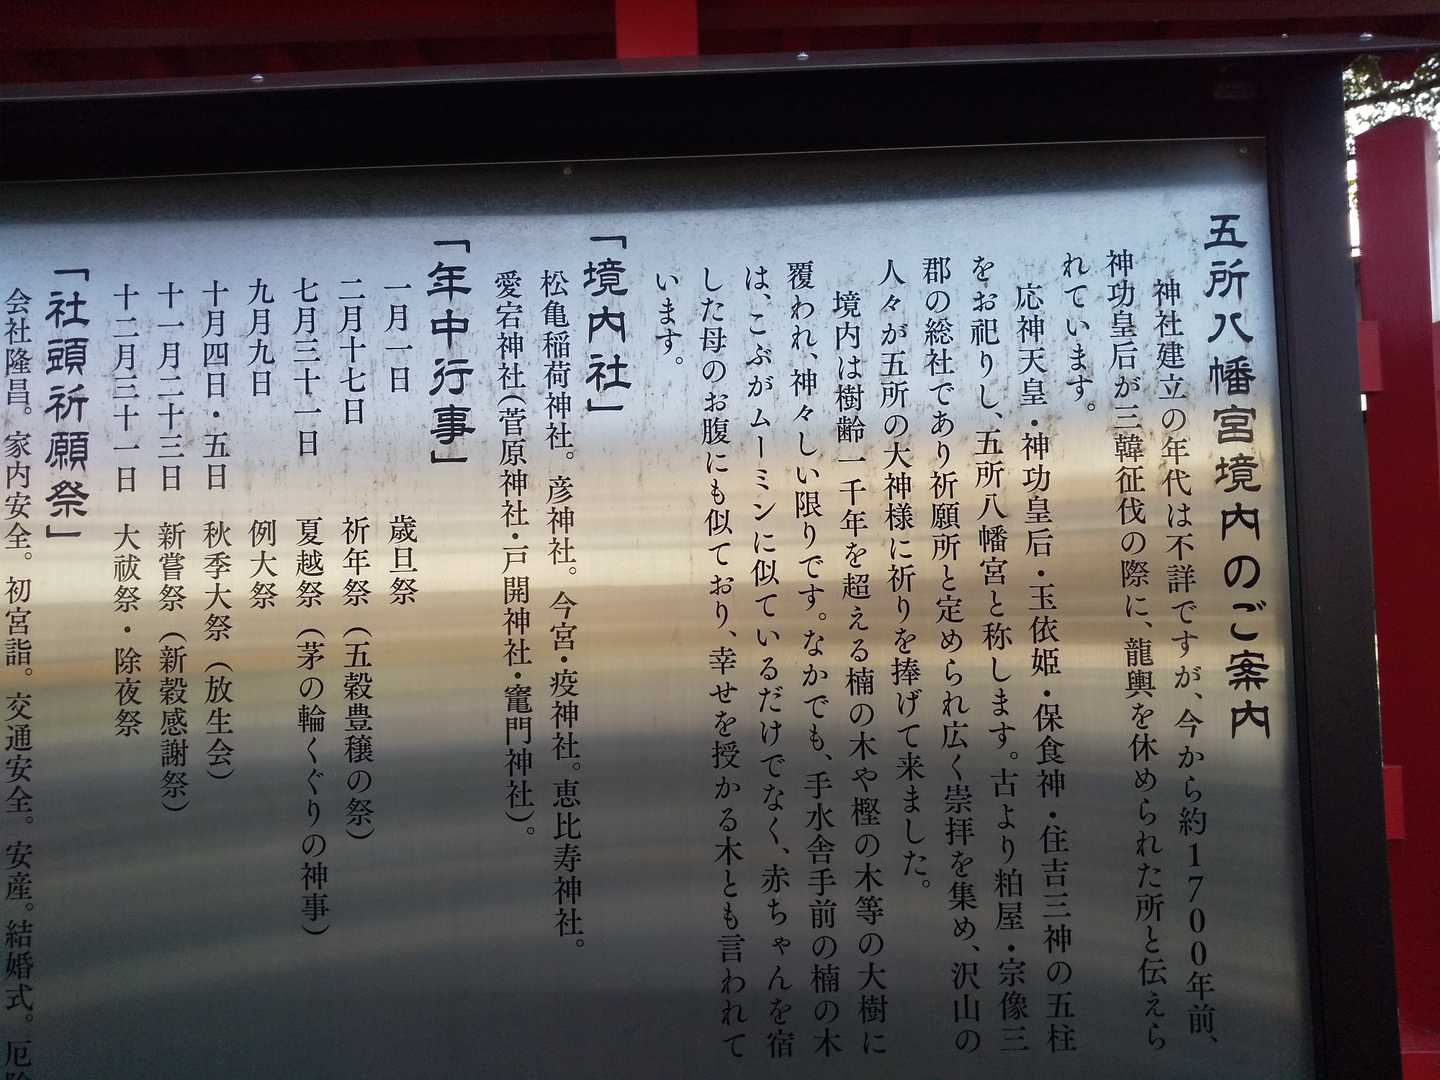 五所八幡宮境内のご案内
神社建立の年代は不詳ですが、今から約1700年前、
神功皇后が三韓征伐の際に、龍輿を休められた所と伝えら
れています。
応神天皇・神功皇后・玉依姫・保食神・住吉三神の五柱
をお祀りし、五所八幡宮と称します。古より粕屋・宗像三
郡の総社であり祈願所と定められ広く崇拝を集め、沢山の
人々が五所の大神様に祈りを捧げて来ました。
境内は樹齢一千年を超える楠の木や樫の木等の大樹に
覆われ、神々しい限りです。なかでも、手水舎手前の楠の木
は、こぶがムーミンに似ているだけでなく、赤ちゃんを宿
した母のお腹にも似ており、幸せを授かる木とも言われて
います。
「境内社」
松亀稲荷神社。彦神社。今宮・疫神社。恵比寿神社。
愛宕神社（菅原神社・戸開神社・竈門神社）。
「年中行事」
一月一日 歳旦祭
二月十七日 祈年祭（五穀豊穣の祭）
七月三十一日 夏越祭（茅の輪くぐりの神事）
九月九日 例大祭
十月四日・五日 秋季大祭（放生会）
十一月二十三日 新嘗祭（新穀感謝祭）
十二月三十一日 大祓祭・除夜祭
「社頭祈願祭」
会社隆昌。家内安全。初宮詣。交通安全。安産。結婚式。厄除